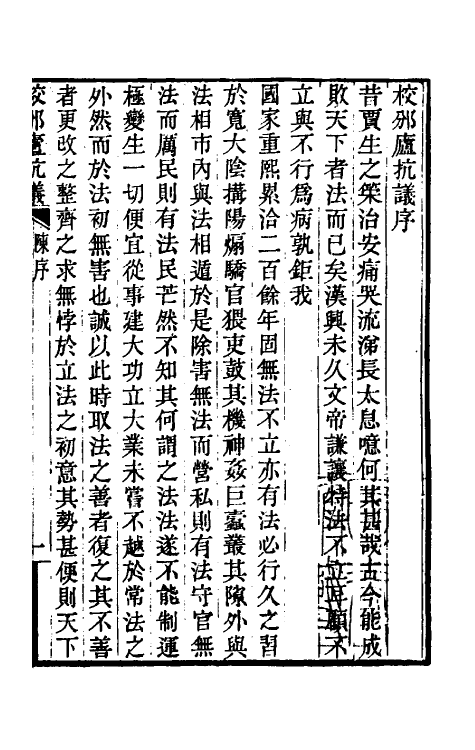 校邠廬抗議序
昔賈生之筞治安痛哭流涕長太息噫何其甚哉古今能成
敗天下者法而已矣漢興未久文帝謙讓特法不立耳顧不
立與不行爲病孰鉅我
國家重熙累洽二百餘年固無法不立亦有法必行久之習
於寬大陰搆陽煽驕官猥吏鼓其機神姦巨蠧叢其隙外與
法相市內與法相遁於是除害無法而營私則有法守官無
法而厲民則有法民芒然不知其何謂之法法遂不能制運
極變生一切便宜從事建大功立大業未嘗不越於常法之
外然而於法初無害也誠以此時取法之善者復之其不善
者更改之整齊之求無悖於立法之初意其勢甚便則天下
校邠廬抗議 陳序 一